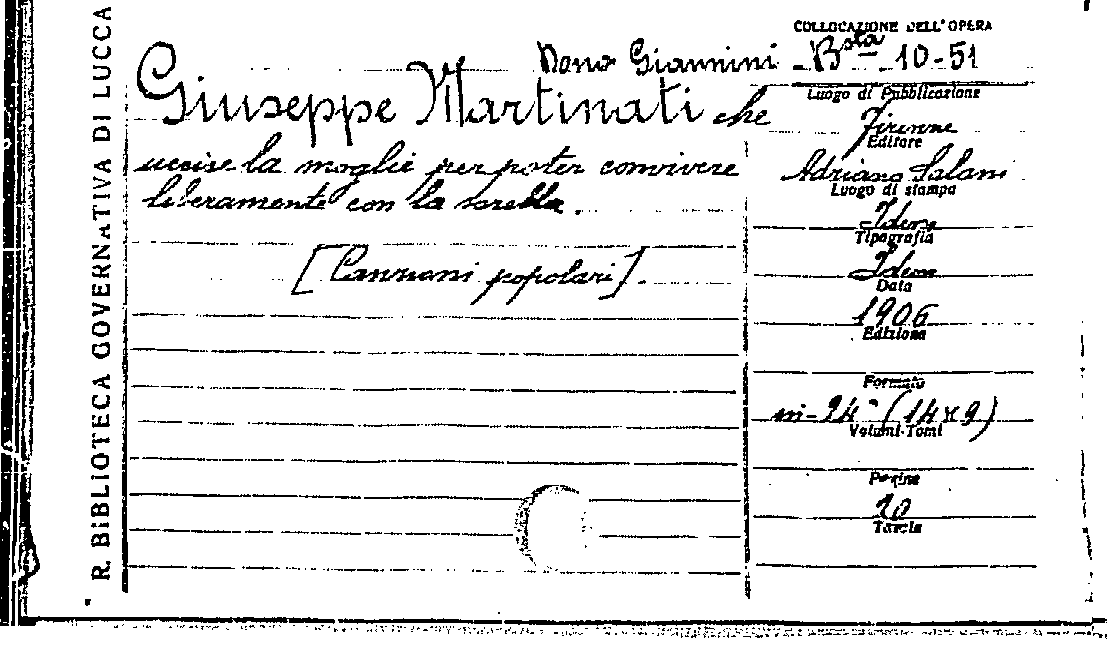 R. BIBLIOTECA GOVERNATIVA DI LUCCA
Dono Giannini
Giuseppe Martinati che
uccise la moglie per poter convivere
liberamente con la sorella.
[Canzoni popolari].
COLLOCAZIONE DELL'OPERA
Bsta 10-51
Luogo di Pubblicazione
Firenze
Editore
Adriano Salani
Luogo di stampa
Idem
Tipografia
Idem
Data
1906
Edizione
Formato
in-24° (14x9)
Volumi-Tomi
Pagine
Tavole